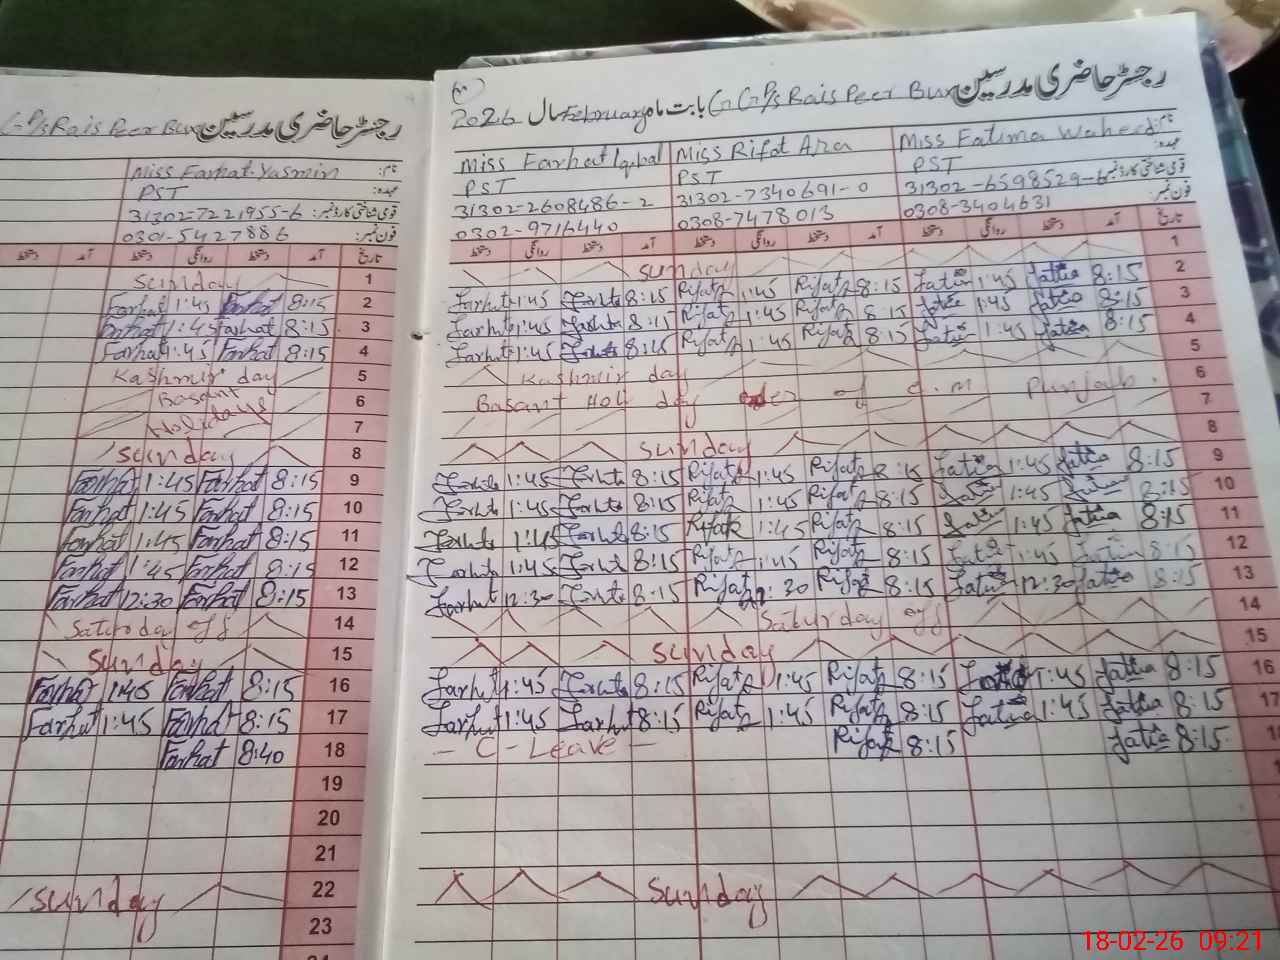 G-P/s Rais Peer Bux رجسٹر حاضری مدرسین
Miss Farhat Yasmin نام:
PST عہدہ:
31302-7221955-6 قومی شناختی کارڈ نمبر:
0301-5427886 فون نمبر:
دستخط آمد دستخط روانگی دستخط آمد تاریخ
Sunday 1
Farhat 1:45 Farhat 8:15 2
Farhat 1:45 Farhat 8:15 3
Farhat 1:45 Farhat 8:15 4
Kashmir day 5
Basant 6
Holidays 7
Sunday 8
Farhat 1:45 Farhat 8:15 9
Farhat 1:45 Farhat 8:15 10
Farhat 1:45 Farhat 8:15 11
Farhat 1:45 Farhat 8:15 12
Farhat 12:30 Farhat 8:15 13
Saturday off 14
Sunday 15
Farhat 1:45 Farhat 8:15 16
Farhat 1:45 Farhat 8:15 17
Farhat 8:40 18
19
20
21
Sunday 22
23
رجسٹر حاضری مدرسین G G P/s Rais Peer Bux بابت ماہ February سال 2026
Miss Farhat Iqbal Miss Rifat Ara Miss Fatima Waheed نام:
PST PST PST عہدہ:
31302-2608486-2 31302-7340691-0 31302-6598529-6 قومی شناختی کارڈ نمبر:
0302-9716440 0308-7478013 0308-3404631 فون نمبر:
دستخط روانگی دستخط آمد دستخط روانگی دستخط آمد دستخط روانگی دستخط آمد تاریخ
Sunday 1
Farhat 1:45 Farhat 8:15 Rifat 1:45 Rifat 8:15 Fatia 1:45 Fatia 8:15 2
Farhat 1:45 Farhat 8:15 Rifat 1:45 Rifat 8:15 Fatia 1:45 Fatia 8:15 3
Farhat 1:45 Farhat 8:15 Rifat 1:45 Rifat 8:15 Fatia 1:45 Fatia 8:15 4
Kashmir day 5
Basant Holi day of C.M Punjab. 6
7
Sunday 8
Farhat 1:45 Farhat 8:15 Rifat 1:45 Rifat 8:15 Fatia 1:45 Fatia 8:15 9
Farhat 1:45 Farhat 8:15 Rifat 1:45 Rifat 8:15 Fatia 1:45 Fatia 8:15 10
Farhat 1:45 Farhat 8:15 Rifat 1:45 Rifat 8:15 Fatia 1:45 Fatia 8:15 11
Farhat 1:45 Farhat 8:15 Rifat 1:45 Rifat 8:15 Fatia 1:45 Fatia 8:15 12
Farhat 12:30 Farhat 8:15 Rifat 12:30 Rifat 8:15 Fatia 12:30 Fatia 8:15 13
Saturday off 14
Sunday 15
Farhat 1:45 Farhat 8:15 Rifat 1:45 Rifat 8:15 1:45 Fatia 8:15 16
Farhat 1:45 Farhat 8:15 Rifat 1:45 Rifat 8:15 Fatia 1:45 Fatia 8:15 17
- C - Leave - Rifat 8:15 Fatia 8:15
Sunday
18-02-26 09:21